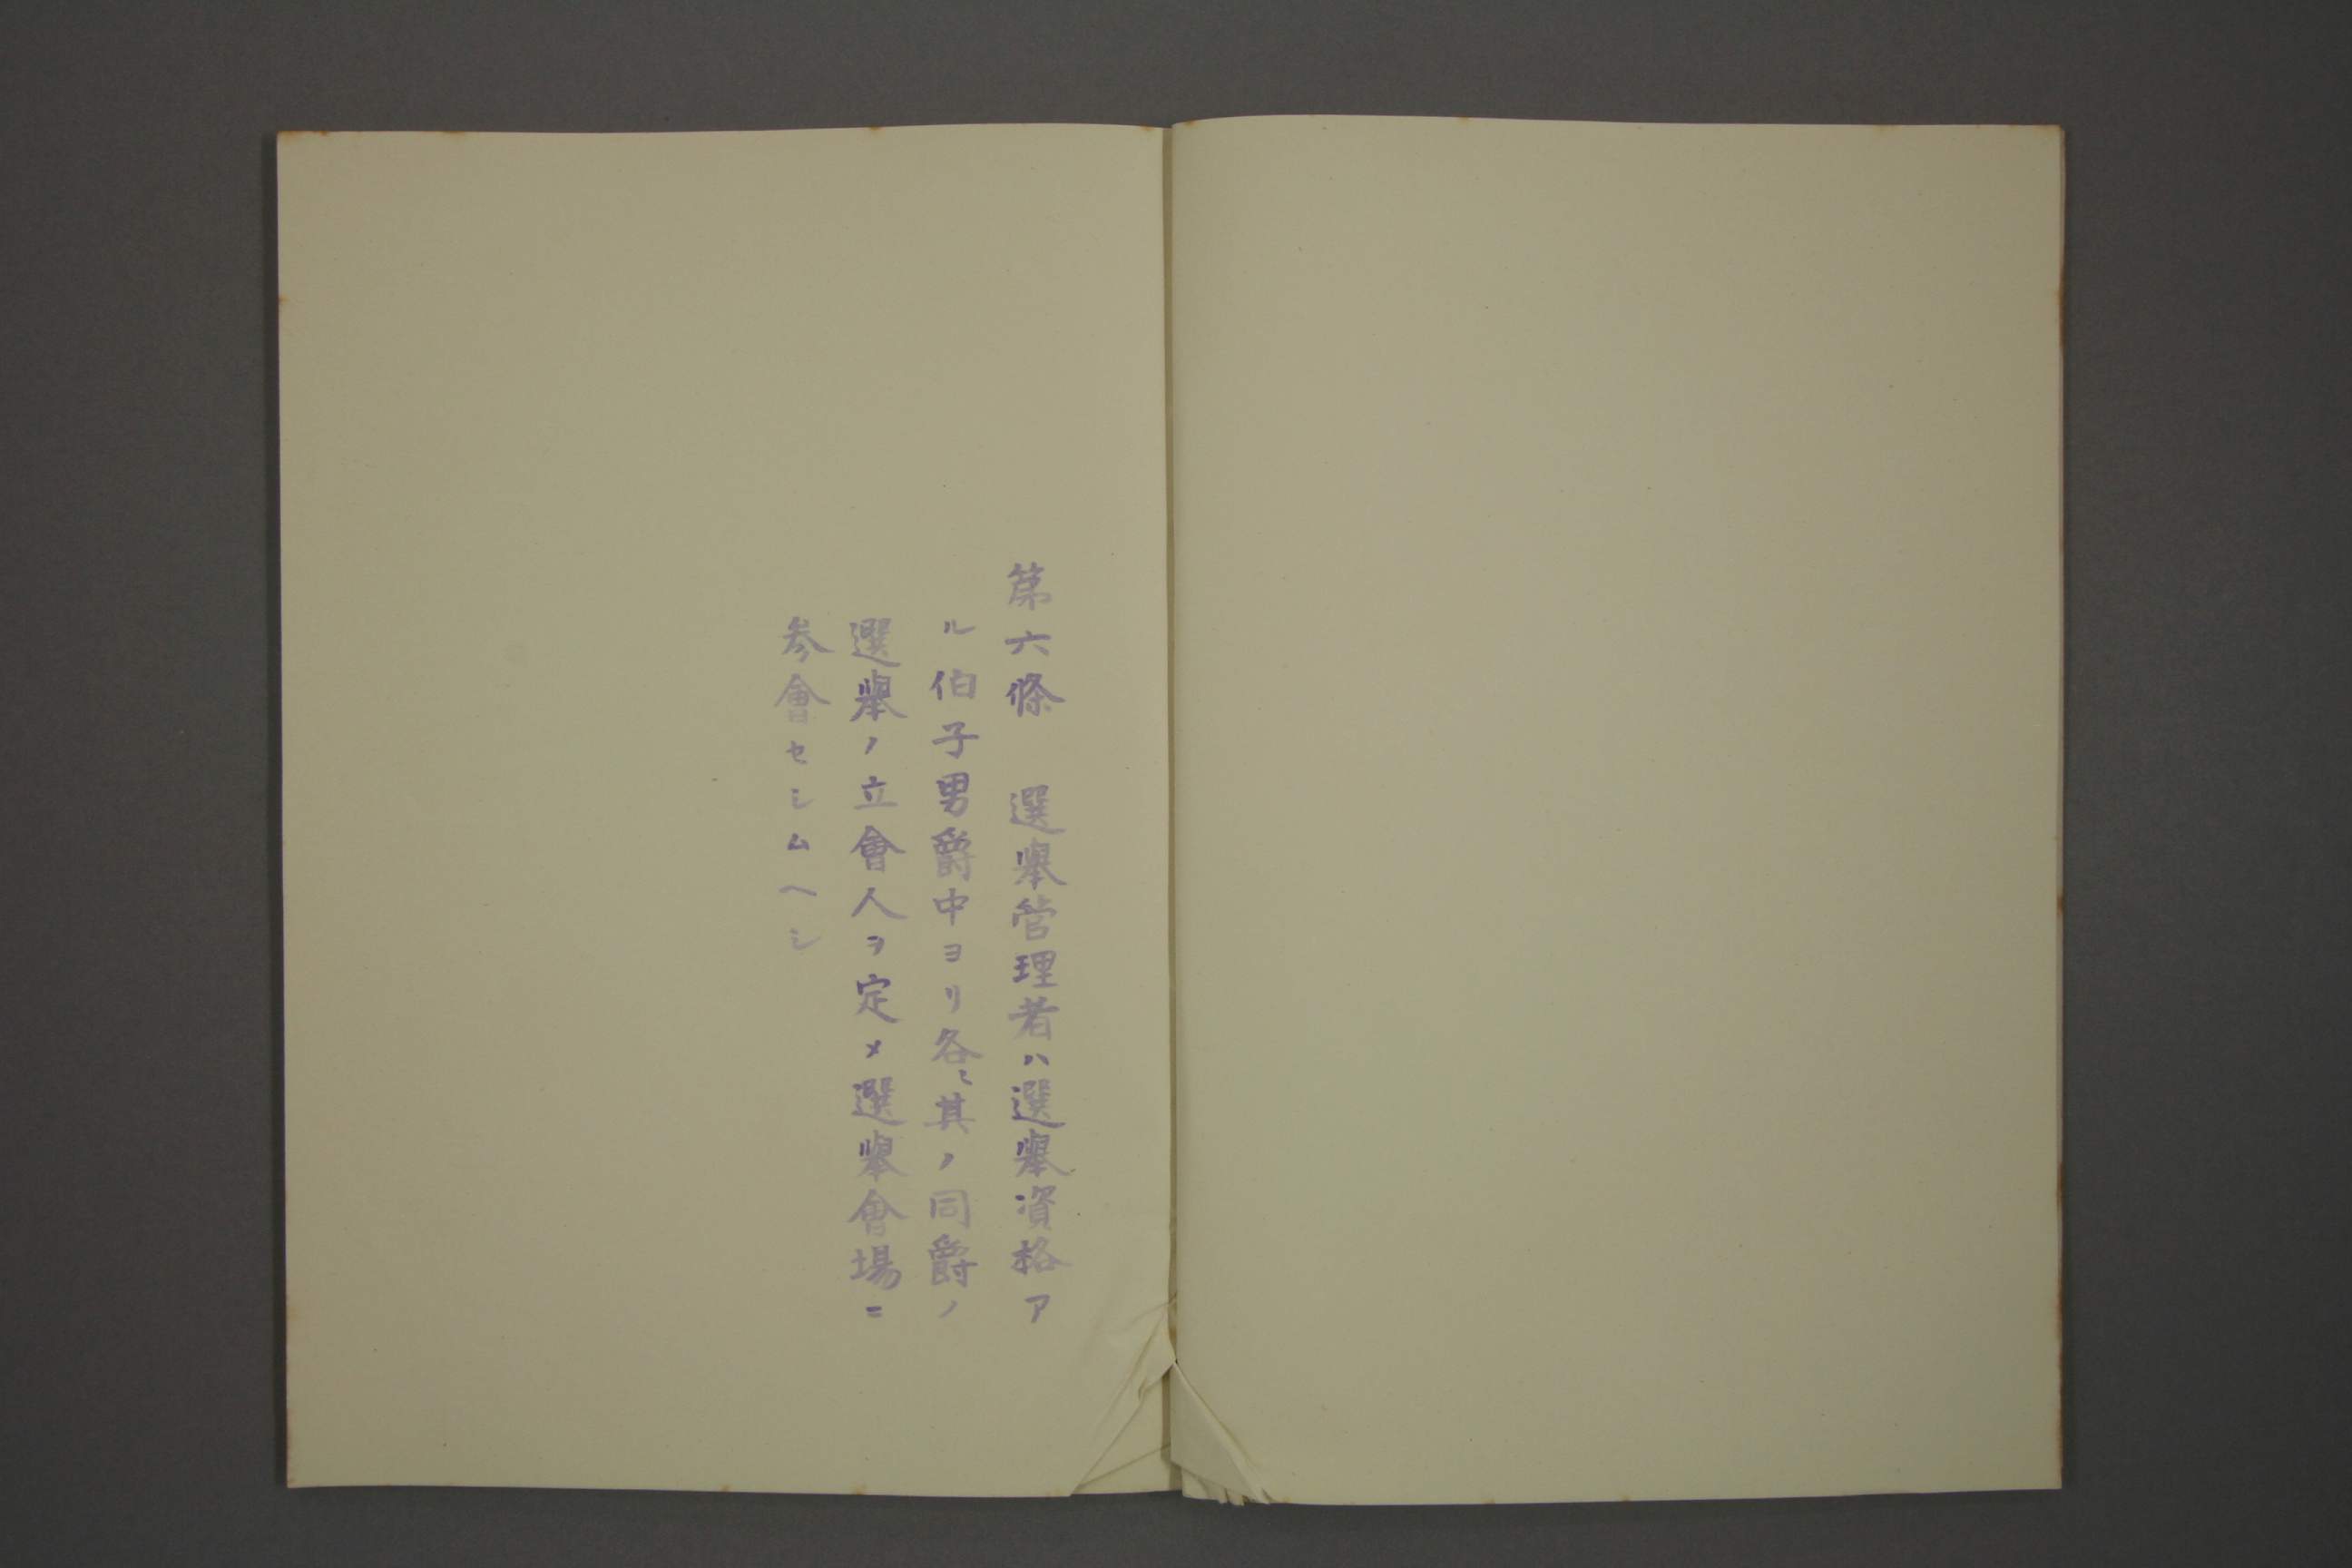 第六條　選擧管理者ハ選擧資格ア
ル伯子男爵中ヨリ各〻其ノ同爵ノ
選擧ノ立會人ヲ定メ選擧會場ニ
参會セシムヘシ